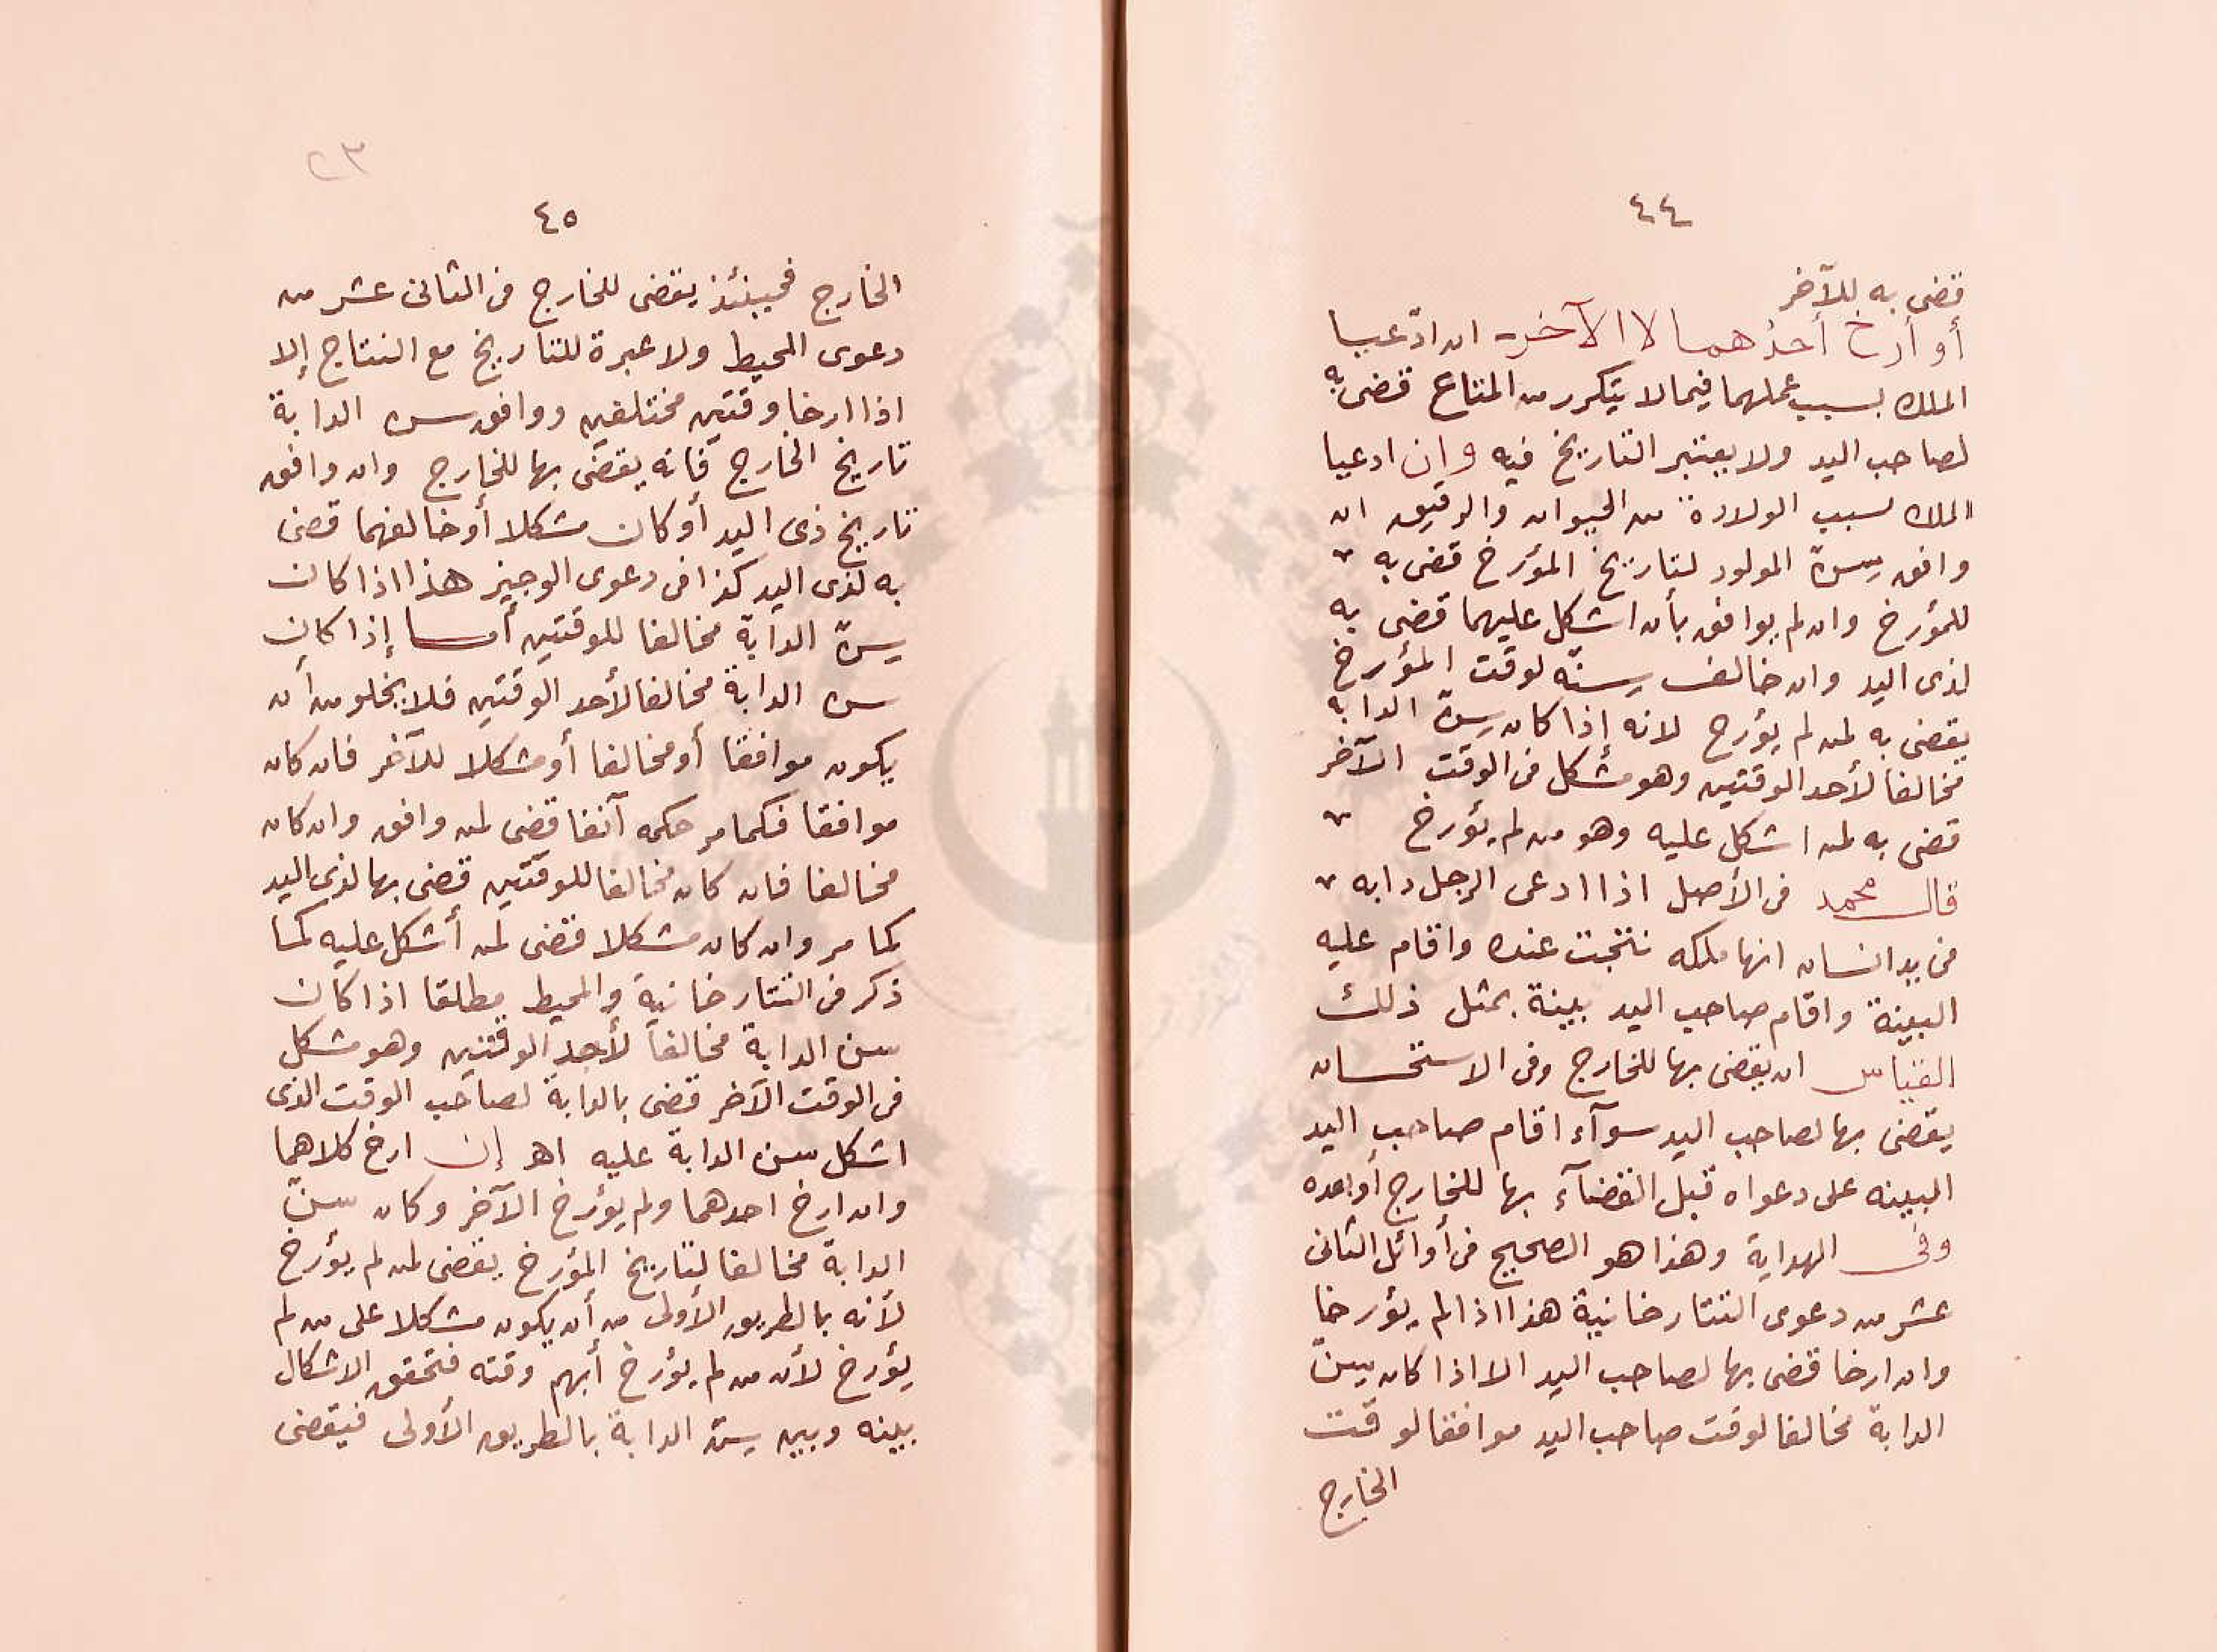 ٤٤
قضى به للآخر
أو أرخ أحدهما لا الآخر ان ادّعيا
الملك بسبب عملهما فيما لا يتكرر من المتاع قضى به
لصاحب اليد ولا يعتبر التاريخ فيه وإن ادعيا
الملك بسبب الولادة من الحيوان والرقيق ان
وافق سنّ المولود لتاريخ المؤرخ قضى به
للمؤرخ وان لم يوافق بأن اشكل عليهما قضى به
لذى اليد وان خالف سنّه لوقت المؤرخ
يقضى به لمن لم يؤرخ لانه إذا كان سنّ الدابة
مخالفا لأحد الوقتين وهو مشكل فى الوقت الآخر
قضى به لمن اشكل عليه وهو من لم يؤرخ
قال محمد فى الأصل اذا ادعى الرجل دابه
فى يد انسان انها ملكه نتجت عنده واقام عليه
البينة واقام صاحب اليد بينة بمثل ذلك
القياس ان يقضى بها للخارج وفى الاستحسان
يقضى بها لصاحب اليد سوآء اقام صاحب اليد
البينه على دعواه قبل القضآء بها للخارج أو بعده
وفى الهداية وهذا هو الصحيح فى أوائل الثانى
عشر من دعوى التتارخانية هذا اذا لم يؤرخا
وان ارخا قضى بها لصاحب اليد الا اذا كان سنّ
الدابة مخالفا لوقت صاحب اليد موافقا لوقت
الخارج
٢٣
٤٥
الخارج فحينئذ يقضى للخارج فى الثانى عشر من
دعوى المحيط ولا عبرة للتاريخ مع النتاج إلا
اذا ارخا وقتين مختلفين ووافق سن الدابة
تاريخ الخارج فانه يقضى بها للخارج وان وافق
تاريخ ذى اليد أو كان مشكلا أو خالفهما قضى
به لذى اليد كذا فى دعوى الوجيز هذا اذا كان
سنّ الدابة مخالفا للوقتين أما إذا كان
سن الدابة مخالفا لأحد الوقتين فلا يخلو من أن
يكون موافقا أو مخالفا أو مشكلا للآخر فان كان
موافقا فكما مر حكمه آنفا قضى لمن وافق وان كان
مخالفا فان كان مخالفا للوقتين قضى بها لذى اليد
كما مر وان كان مشكلا قضى لمن أشكل عليه كما
ذكر فى التتارخانية والمحيط مطلقا اذا كان
سن الدابة مخالفا لأحد الوقتين وهو مشكل
فى الوقت الآخر قضى بالدابة لصاحب الوقت الذى
اشكل سن الدابة عليه اهـ إن ارخ كلاهما
وان ارخ احدهما ولم يؤرخ الآخر وكان سنّ
الدابة مخالفا لتاريخ المؤرخ يقضى لمن لم يؤرخ
لأنه بالطريق الأولى من أن يكون مشكلا على من لم
يؤرخ لأن من لم يؤرخ أبهم وقته فتحقق الاشكال
بينه وبين سنّ الدابة بالطريق الأولى فيقضى